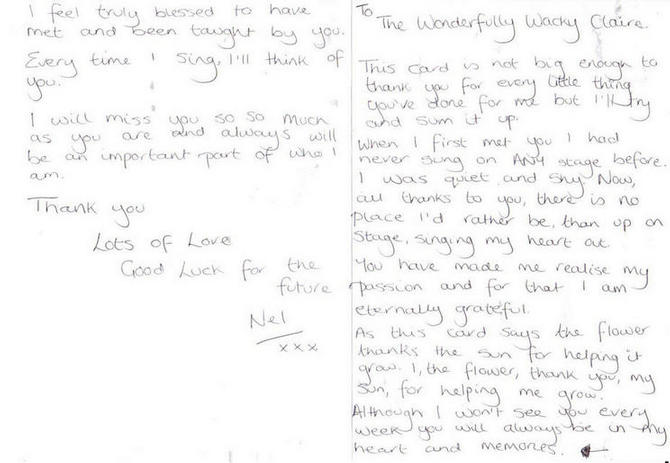 To
The Wonderfully Wacky Claire.
This card is not big enough to
thank you for every little thing
you've done for me but I'll try
and sum it up.
When I first met you I had
never sung on ANY stage before.
I was quiet and shy. Now,
all thanks to you, there is no
place I'd rather be, than up on
stage, singing my heart out.
You have made me realise my
passion and for that I am
eternally grateful.
As this card says the flower
thanks the sun for helping it
grow. I, the flower, thank you, my
sun, for helping me grow.
Although I won't see you every
week you will always be in my
heart and memories. ←
I feel truly blessed to have
met and been taught by you.
Every time I sing, I'll think of
you.
I will miss you so so much
as you are and always will
be an important part of who I
am.
Thank you
Lots of Love
Good Luck for the
future
Nel
xxx